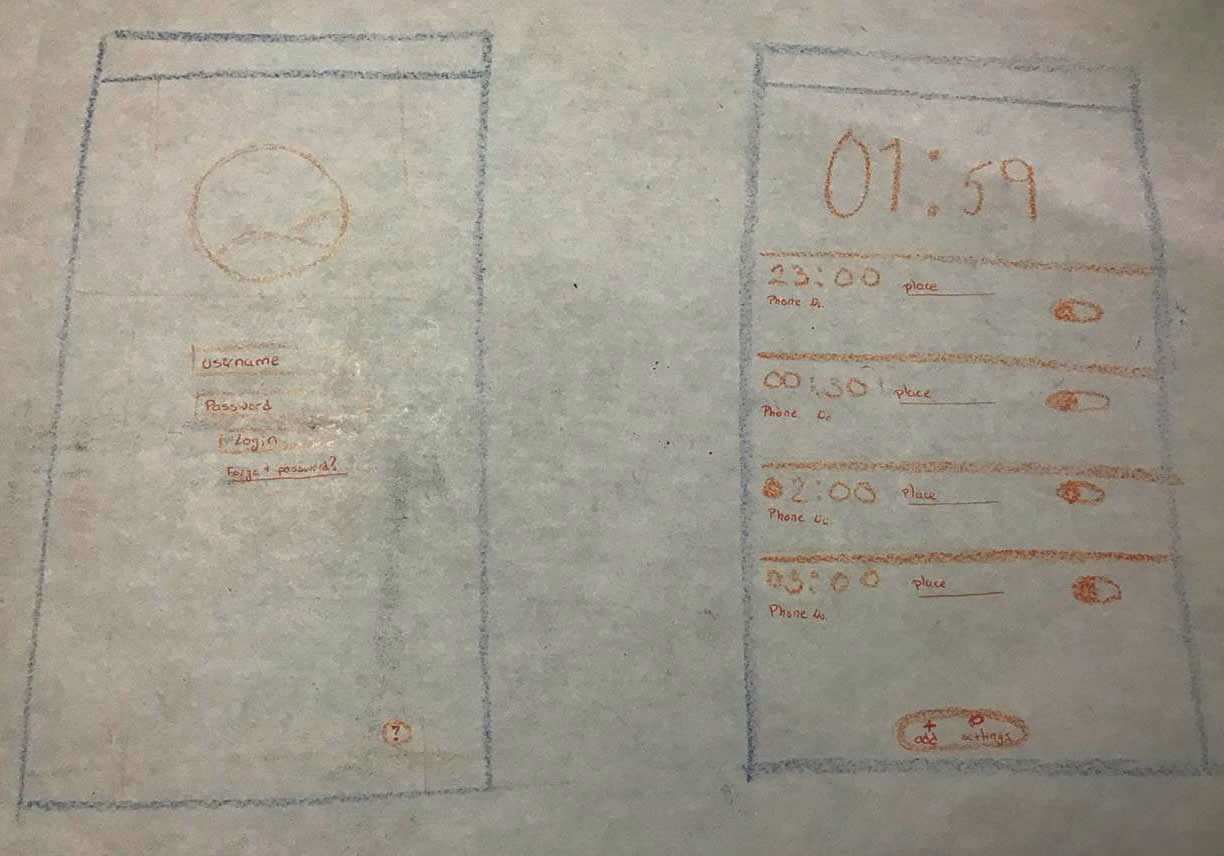 username
Password
Login
Forgot password?
?
01:59
23:00 place
Phone
00:30 place
Phone
02:00 place
Phone
03:00 place
Phone
+
add settings